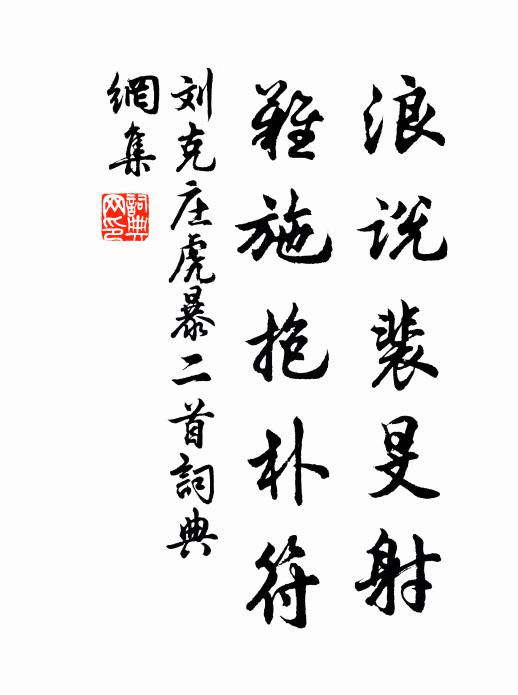 浪说裴旻射
难施抱朴符
刘克庄虎暴二首詞典
網集
詞典网印